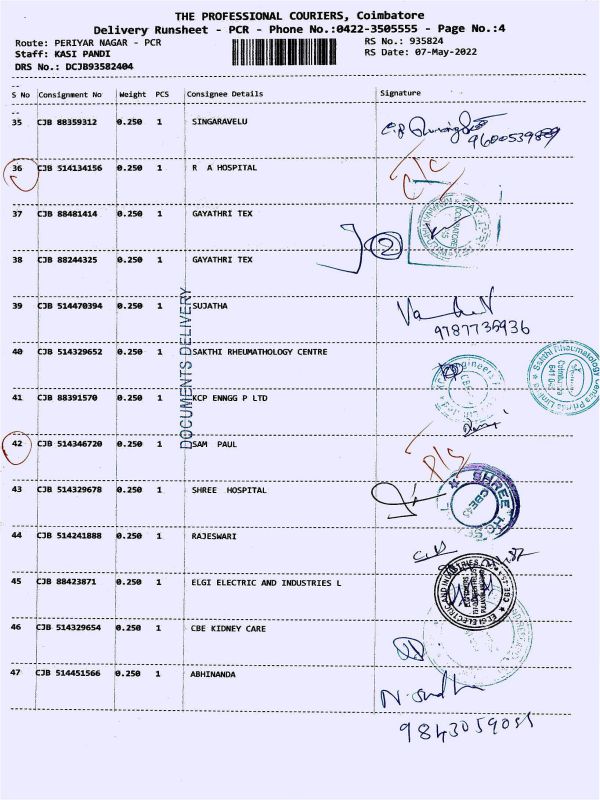 THE PROFESSIONAL COURIERS, Coimbatore
Delivery Runsheet - PCR - Phone No.:0422-3505555 - Page No.:4
Route: PERIYAR NAGAR - PCR
RS No.: 935824
Staff: KASI PANDI
RS Date: 07-May-2022
DRS No.: DCJB93582404
S No Consignment No Weight PCS Consignee Details Signature
35 CJB 88359312 0.250 1 SINGARAVELU
36 CJB 514134156 0.250 1 R A HOSPITAL
37 CJB 88481414 0.250 1 GAYATHRI TEX
2
38 CJB 88244325 0.250 1 GAYATHRI TEX
39 CJB 514470394 0.250 1 SUJATHA
9787735936
40 CJB 514329652 0.250 1 SAKTHI RHEUMATHOLOGY CENTRE
41 CJB 88391570 0.250 1 KCP ENNGG P LTD
42 CJB 514346720 0.250 1 SAM PAUL
43 CJB 514329678 0.250 1 SHREE HOSPITAL
44 CJB 514241888 0.250 1 RAJESWARI
45 CJB 88423871 0.250 1 ELGI ELECTRIC AND INDUSTRIES L
46 CJB 514329654 0.250 1 CBE KIDNEY CARE
47 CJB 514451566 0.250 1 ABHINANDA
DOCUMENTS DELIVERY